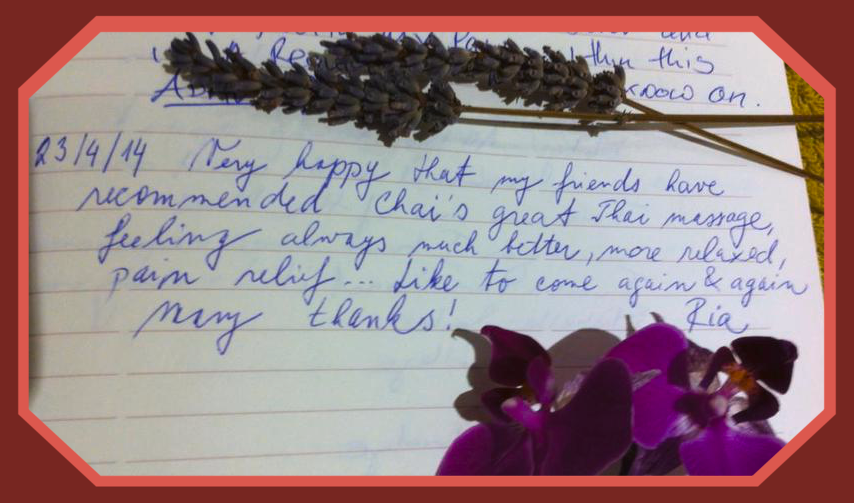 and
this
know on.
23/4/14 Very happy that my friends have
recommended Chai's great Thai massage,
feeling always much better, more relaxed,
pain relief... Like to come again & again
Many thanks! Ria